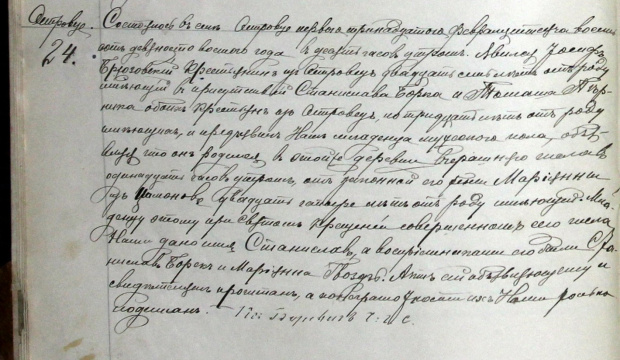 Островус.
24.
Состоялось въ селѣ Островус первого тринадцатого Февраля тысяча восемь
сотъ девяносто восьмого года въ десять часовъ утромъ. Явился Іосифъ
крестьянинъ изъ Островецъ двадцать семь лѣтъ отъ роду
имѣющій въ присутствіи Станислава Борка и Томаша
обоихъ крестьянъ изъ Островецъ, по тридцать лѣтъ отъ роду
имѣющихъ, и предъявилъ Намъ младенца мужеского пола, объя-
вляя что онъ родился въ этой деревни вчерашнего числа въ
одинадцать часовъ утромъ, отъ законной его жены Маріянны
изъ двадцать четыре лѣтъ отъ роду имѣющей. Мла-
денцу этому при святомъ крещеніи совершенномъ сего числа
Нами дано имя Станиславъ, а воспріемниками его были Ста-
ниславъ Борекъ и Маріянна Гвоздъ. Актъ сей объявляющему и
свидѣтелямъ прочитанъ, а по неграмотности ихъ Нами только
подписанъ.